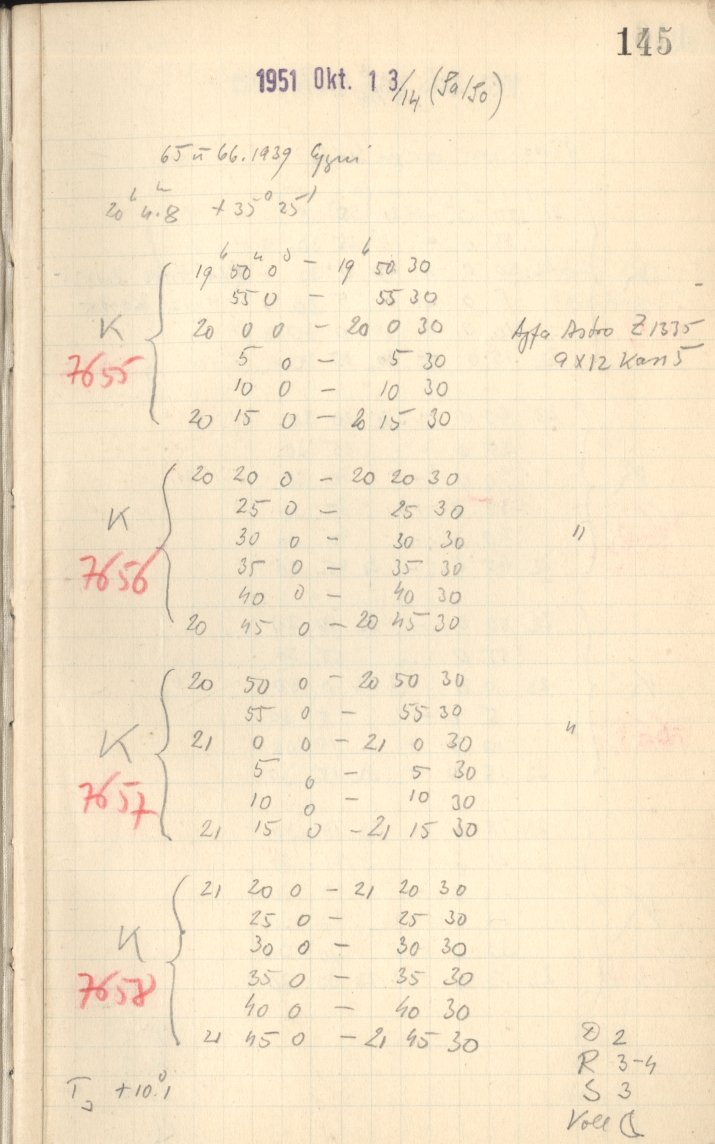 145
1951 Okt. 13/14 (Sa/So)
65 u 66.1939 Cygni
20ʰ 4ᵐ.8 +35⁰ 25'
19ʰ 50ᵐ 0ˢ – 19ʰ 50 30
55 0 – 55 30
K 20 0 0 – 20 0 30 Agfa Astro Z 1335
7655 5 0 – 5 30 9x12 Kass 5
10 0 – 10 30
20 15 0 – 20 15 30
20 20 0 – 20 20 30
K 25 0 – 25 30
30 0 – 30 30 "
7656 35 0 – 35 30
40 0 – 40 30
20 45 0 – 20 45 30
20 50 0 – 20 50 30
55 0 – 55 30
K 21 0 0 – 21 0 30 "
5 0 – 5 30
7657 10 0 – 10 30
21 15 0 – 21 15 30
21 20 0 – 21 20 30
25 0 – 25 30
K 30 0 – 30 30
7658 35 0 – 35 30
40 0 – 40 30
21 45 0 – 21 45 30
D 2
R 3-4
T +10⁰.1 S 3
Voll